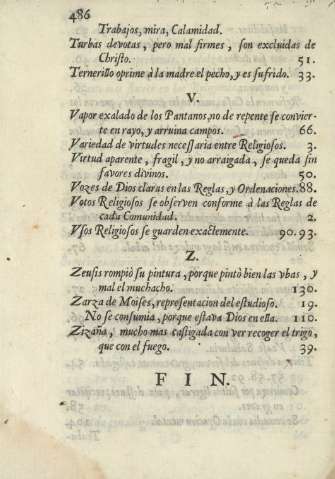 486
Trabajos, mira, Calamidad.
Turbas devotas, pero mal firmes, son excluidas de
Christo. 51.
Ternerillo oprime à la madre el pecho, y es sufrido. 33.
V.
Vapor exalado de los Pantanos, no de repente se convier-
te en rayo, y arruina campos. 66.
Variedad de virtudes necessaria entre Religiosos. 3.
Virtud aparente, fragil, y no arraigada, se queda sin
favores divinos. 50.
Vozes de Dios claras en las Reglas, y Ordenaciones. 88.
Votos Religiosos se observen conforme à las Reglas de
cada Comunidad. 2.
Vsos Religiosos se guarden exactemente. 90.93.
Z.
Zeusis rompiò su pintura, porque pintò bien las vbas, y
mal el muchacho. 130.
Zarza de Moises, representacion del estudioso. 19.
No se consumia, porque estava Dios en ella. 110.
Zizaña, mucho mas castigada con ver recoger el trigo,
que con el fuego. 39.
FIN.